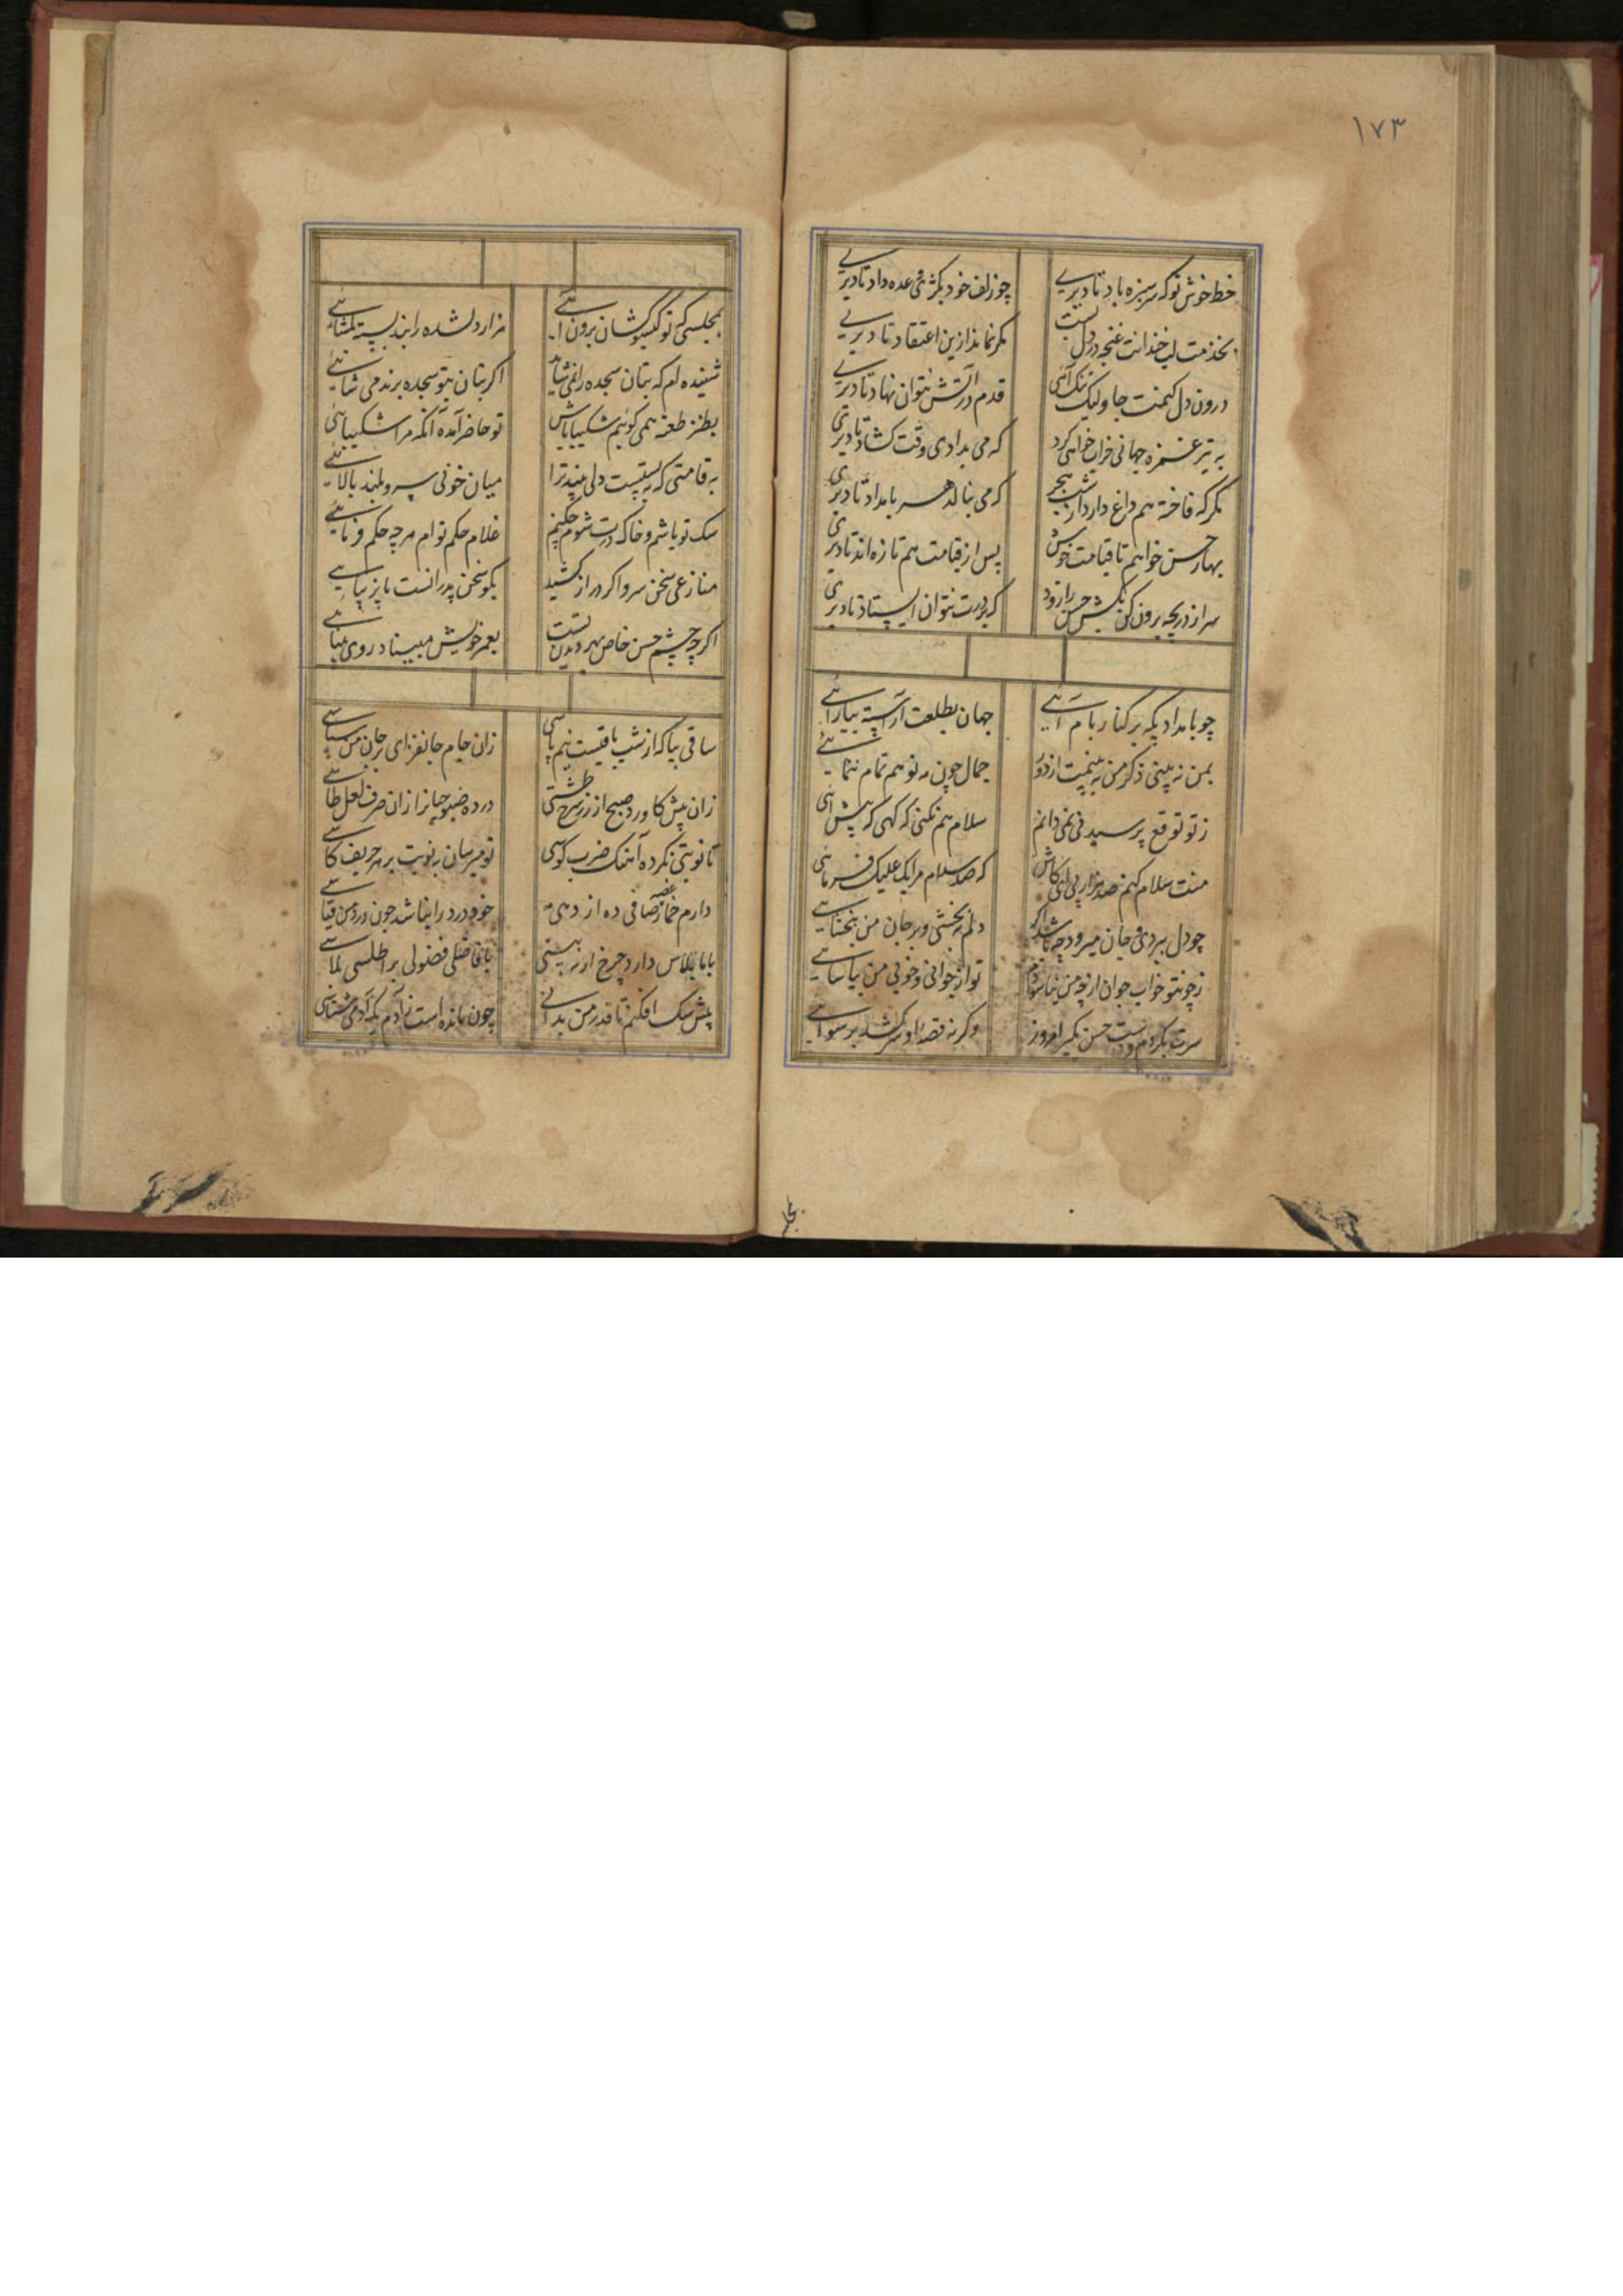 ۱۷۳
خط خوش تو که سر سبزه باد تا دیری چو زلف خود بکژی وعده داد تا دیری
بخدمت لب خندانت غنچه در دل بست مگر نماند ازین اعتقاد تا دیری
درون دل کنمت جا ولیک تنک آئی قدم در آتش نتوان نهاد تا دیری
به تیر غمزه جهانی خراب خواهی کرد که می بدادی وقت کشاد تا دیری
مگر که فاخته هم داغ دارد از شب هجر که می بنالد هر بامداد تا دیری
بهار حسن خواهم تا قیامت خوش پس از قیامت هم تازه اند تا دیری
سر از دریچه برون کن بکش حسن را زود که بر درت نتوان ایستاد تا دیری
چو بامداد پکه بر کنار بام آئی جهان بطلعت آراسته بیارائی
بمن نه بینی ذکر من به بینمت از دور جمال چون مه نو هم تمام ننمائی
ز تو توقع پرسیدنی نمی دانم سلام هم نکنی که کهی که پیش آئی
منت سلام کنم صد هزار پی ای کاش که صد سلام مرا یک علیک فرمائی
چو دل ببردی و جان میرود چه باشد اگر دلم به بخشی و بر جان من ببخشائی
تو از جوانی و خوبی من بیاسائی
سرت بگردم و دست حسن بگیر امروز وگرنه قصه او سر کشد برسوائی
بمجلس
بمجلسی که تو گیسو کشان برون آئی هزار دلشده را بند بسته بگشائی
شنیده ام که بتان سجده را نمی شاید اگر بتان بتو سجده برند می شائی
بطنز طعنه همی گوئیم شکیبا باش تو حاضر آمده آنگه مرا شکیبائی
به قامتی که به پیش دلی بیند ترا میان خونی سرو بلند بالائی
سک تو باشم و خاک درت شوم چکنم غلام حکم توام هر چه حکم فرمائی
منازعی سخن سرو اگر دراز کشید بگو سخن پدر انست با زیبائی
اگر چه چشم حسن خاص بهر دیدن تست بعمر خویش مبیناد روی بینائی
ساقی بیا که از شب باقیست نیم پاسی زان جام جانفزای بر جان من سپاسی
زان پیش کاورد صبح از زر سرخ طشتی در ده صبوحیانرا زان صرف لعل طاسی
تا نوبتی نکرده آهنک ضرب کوسی تو میرسان به نوبت بر هر حریف کاسی
دارم خمار غصه صافی ده از دمی مه خود درد را نباشد چون درد من قیاسی
بابا پلاس دارد چرخ ار نه پستی با فاضلی فضولی بر اطلسی پلاسی
پیش سک افکنم تا قدر من بدانی چون مانده است ز آدم یک آدمی شناسی